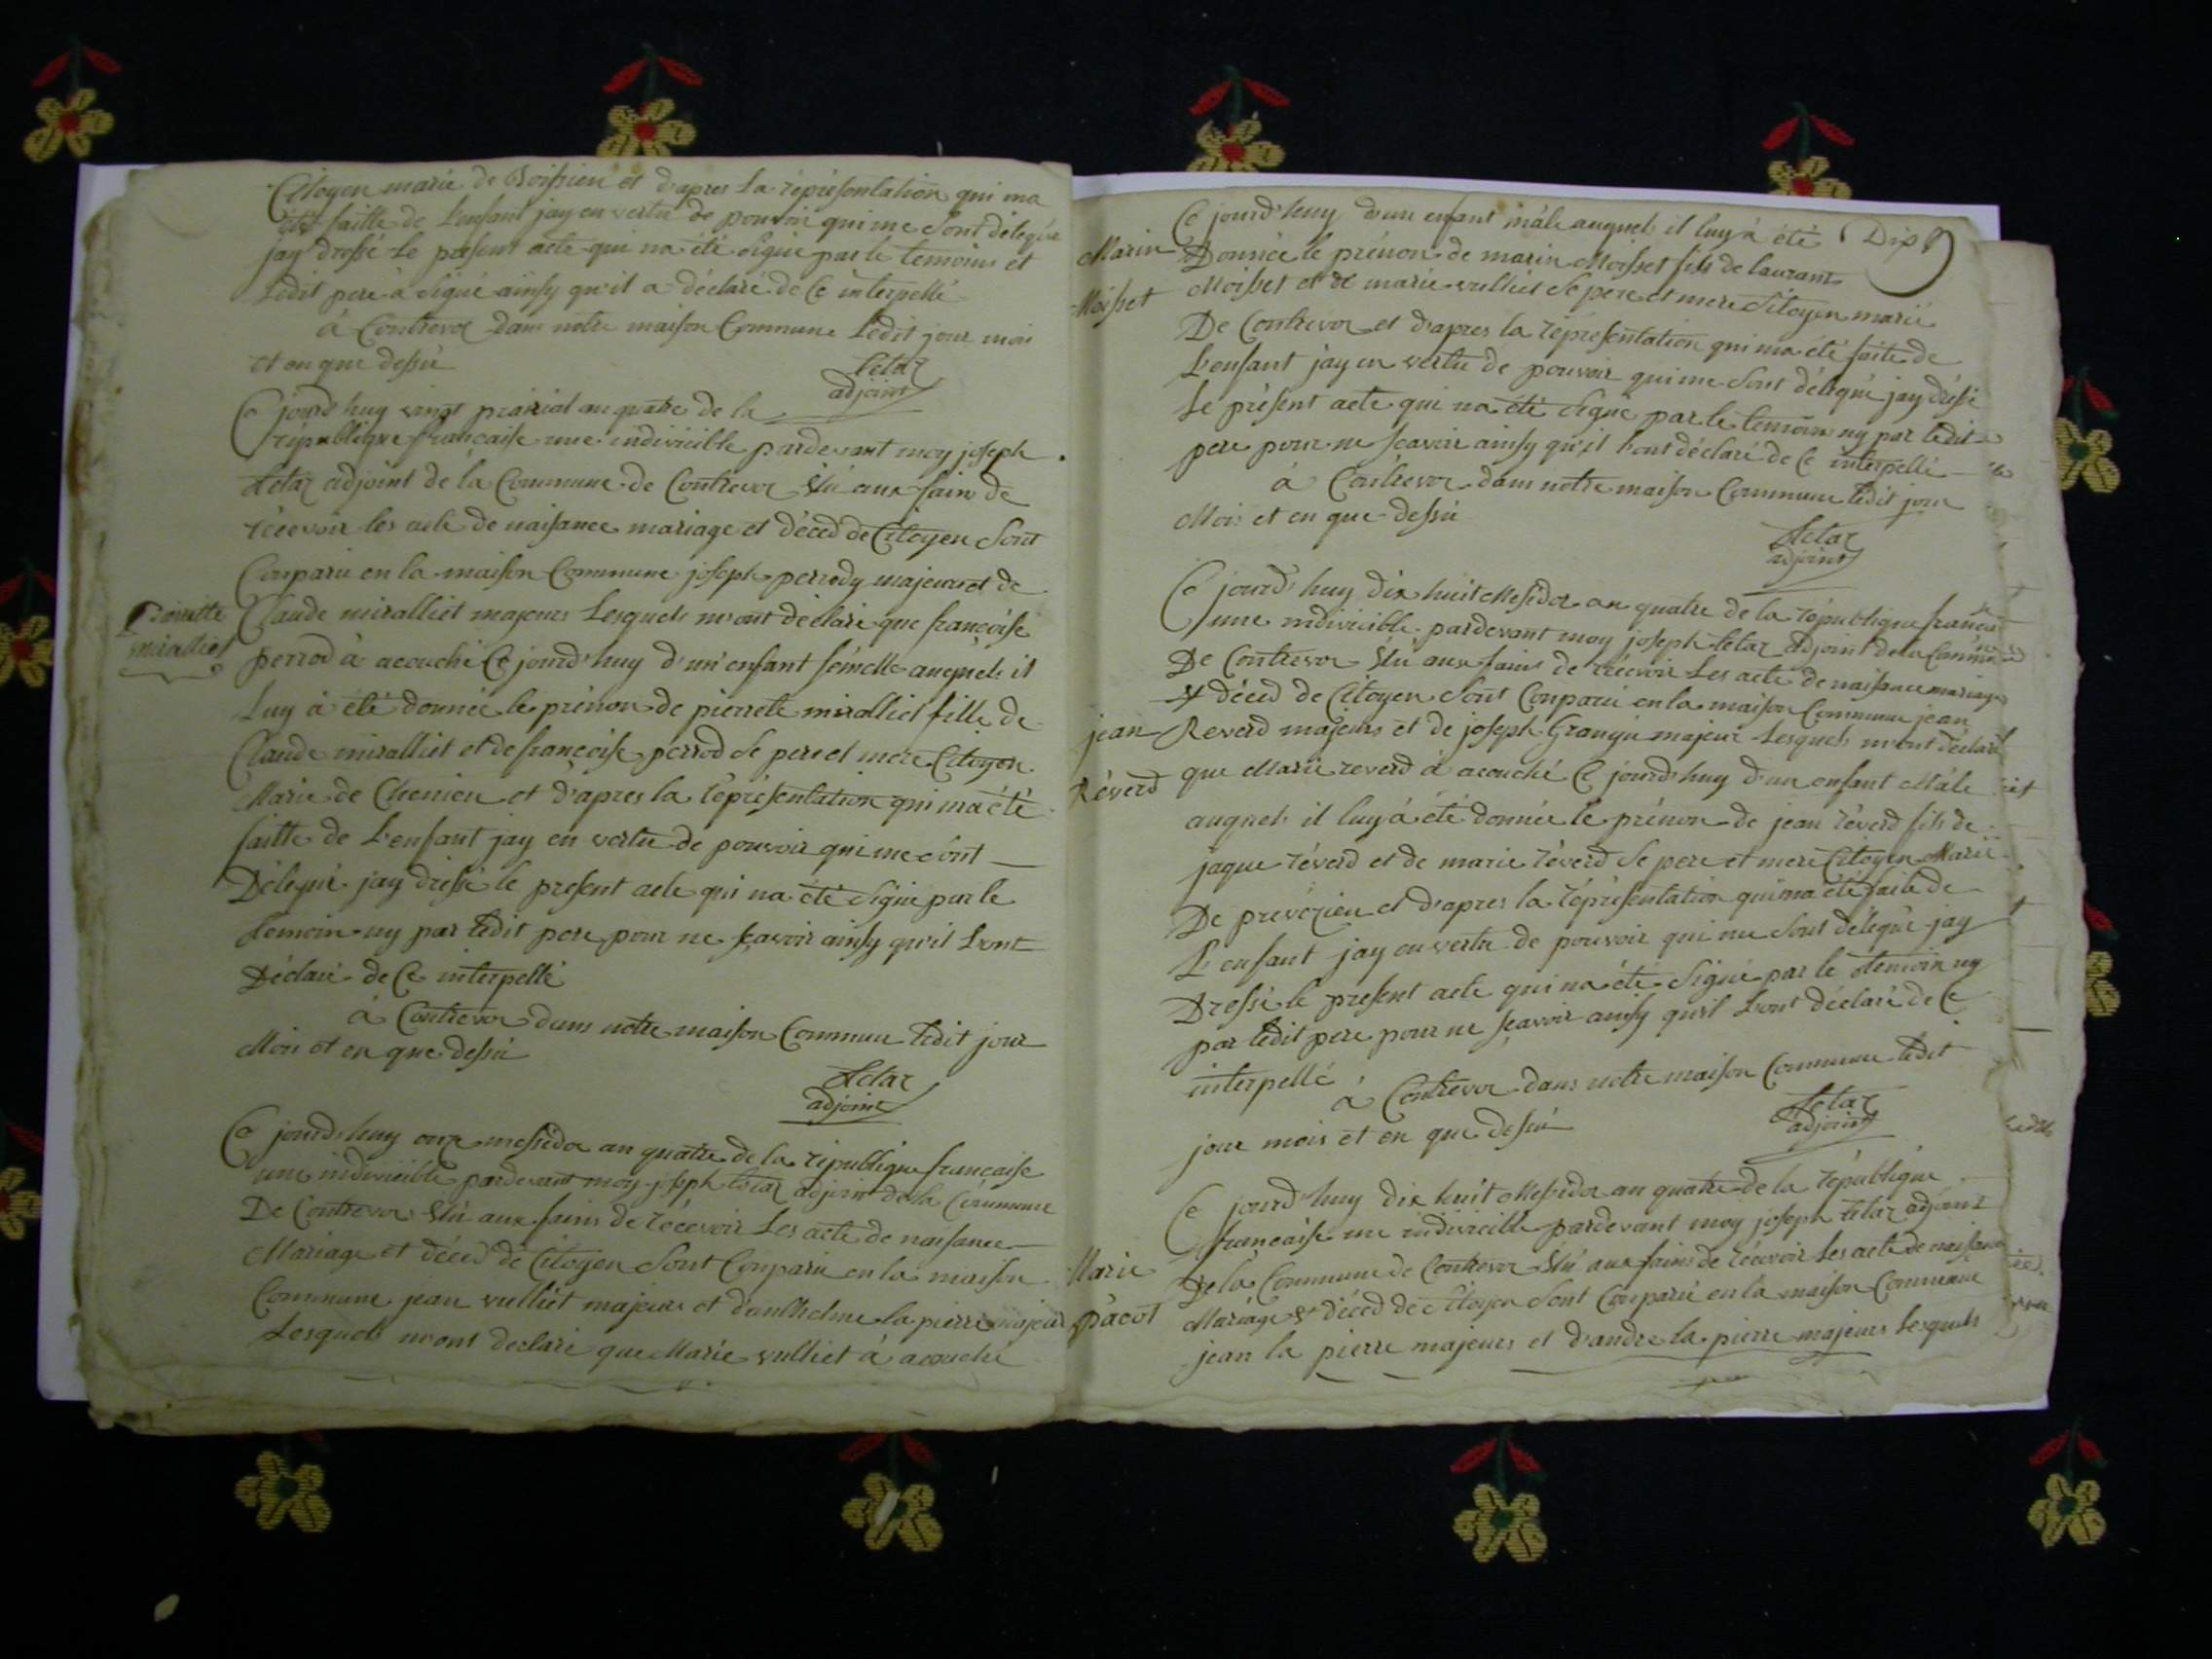 Citoyen marié de Boissieu et d'apres La réprésentation qui ma
été faitte de L'enfant jay en vertu de pouvoir qui me sont délégué
jay dressé le présent acte qui na été signé par le temoins et
Ledit pere à signé ainsy qu'il a déclaré de Ce interpellé
à Contrevoz dans notre maison Commune Ledit jour mois
et an que dessu
Letaz
adjoint
Ce jourd'huy vingt prairial an quatre de la
république française une indivicible pardevant moy joseph
Letaz adjoint de la Commune de Contrevoz Elu aux fains de
récevoir les acte de naisance mariage et déced de Citoyen Sont
Conparu en la maison Commune joseph perrody majeurs et de
Pierrette
Claude miralliet majeurs Lesquels m'ont déclaré que françoise
miralliet
perrod à acouché Ce jourd'huy d'un enfant fémelle auquels il
Luy à été donnée le prénon de pierrete miralliet fille de
Claude miralliet et de françoise perrod Se pere et mere Citoyen
Marié de Chemien et d'apres la réprésentation qui ma été
faitte de L'enfant jay en vertu de pouvoir qui me sont
Délegué jay dressé le présent acte qui na été Signé par le
témoin ny par ledit pere pour ne sçavoir ainsy qu'il L'ont
Déclaré de Ce interpellé
à Contrevoz dans notre maison Commune Ledit jour
Mois et an que dessu
Letaz
adjoint
Ce jourd'huy onze messidor an quatre de la république française
une indivicible pardevant moy joseph Letaz adjoint de la Commune
De Contrevoz Elu aux fains de récevoir Les acte de naisance
Mariage et déced de Citoyen Sont Conparu en la maison
Commune jean vulliet majeurs et d'anthelme la pierre majeur
Lesquels m'ont declaré que Marie vulliet à acouché
Ce jourd'huy d'un enfant mâle auquels il luy à été Dix
Marin
Donnée le prénon de marin Moisset fils de laurant
Moisset
Moisset et de marie vulliet Se pere et mere Citoyen marié
De Contrevoz et d'apres la réprésentation qui ma été faite de
L'enfant jay en vertu de pouvoir qui me sont délegué jay dréssé
Le présent acte qui na été Signé par le temoin ny par ledit
pere pour ne sçavoir ainsy qu'il L'ont déclaré de Ce interpellé
à Contrevoz dans notre maison Commune ledit jour
Mois et an que dessu
Letaz
adjoint
Ce jourd'huy dix huit Messidor an quatre de la république française
une indivicible pardevant moy joseph letaz adjoint de la Commune
De Contrevoz Elu aux fains de récevoir Les acte de naisance mariage
& déced de Citoyen Sont Conparu en la maison Commune jean
jean
Reverd majeurs et de joseph Grangu majeur Lesquels m'ont déclaré
Réverd
que Marie reverd à acouché Ce jourd'huy d'un enfant Mâle
auquels il luy à été donnée le prénon de jean réverd fils de
jaque réverd et de marie réverd Se pere et mere Citoyen Marié
De prevezieu et d'apres la réprésentation qui ma été faite de
L'enfant jay en vertu de pouvoir qui me sont délegué jay
Dressé le présent acte qui na été Signé par le témoin ny
par ledit pere pour ne sçavoir ainsy qu'il L'ont déclaré de Ce
interpellé
à Contrevoz dans notre maison Commune ledit
jour mois et an que dessu
Letaz
adjoint
Ce jourd'huy dix huit Messidor an quatre de la république
francaise une indivicible pardevant moy joseph letaz adjoint
Marie
De la Commune de Contrevoz Elu aux fains de récevoir Les acte de naisance
pacot
Mariage & déced de Citoyen Sont Conparu en la maison Commune
jean la pierre majeurs et d'andre la pierre majeurs Lesquels